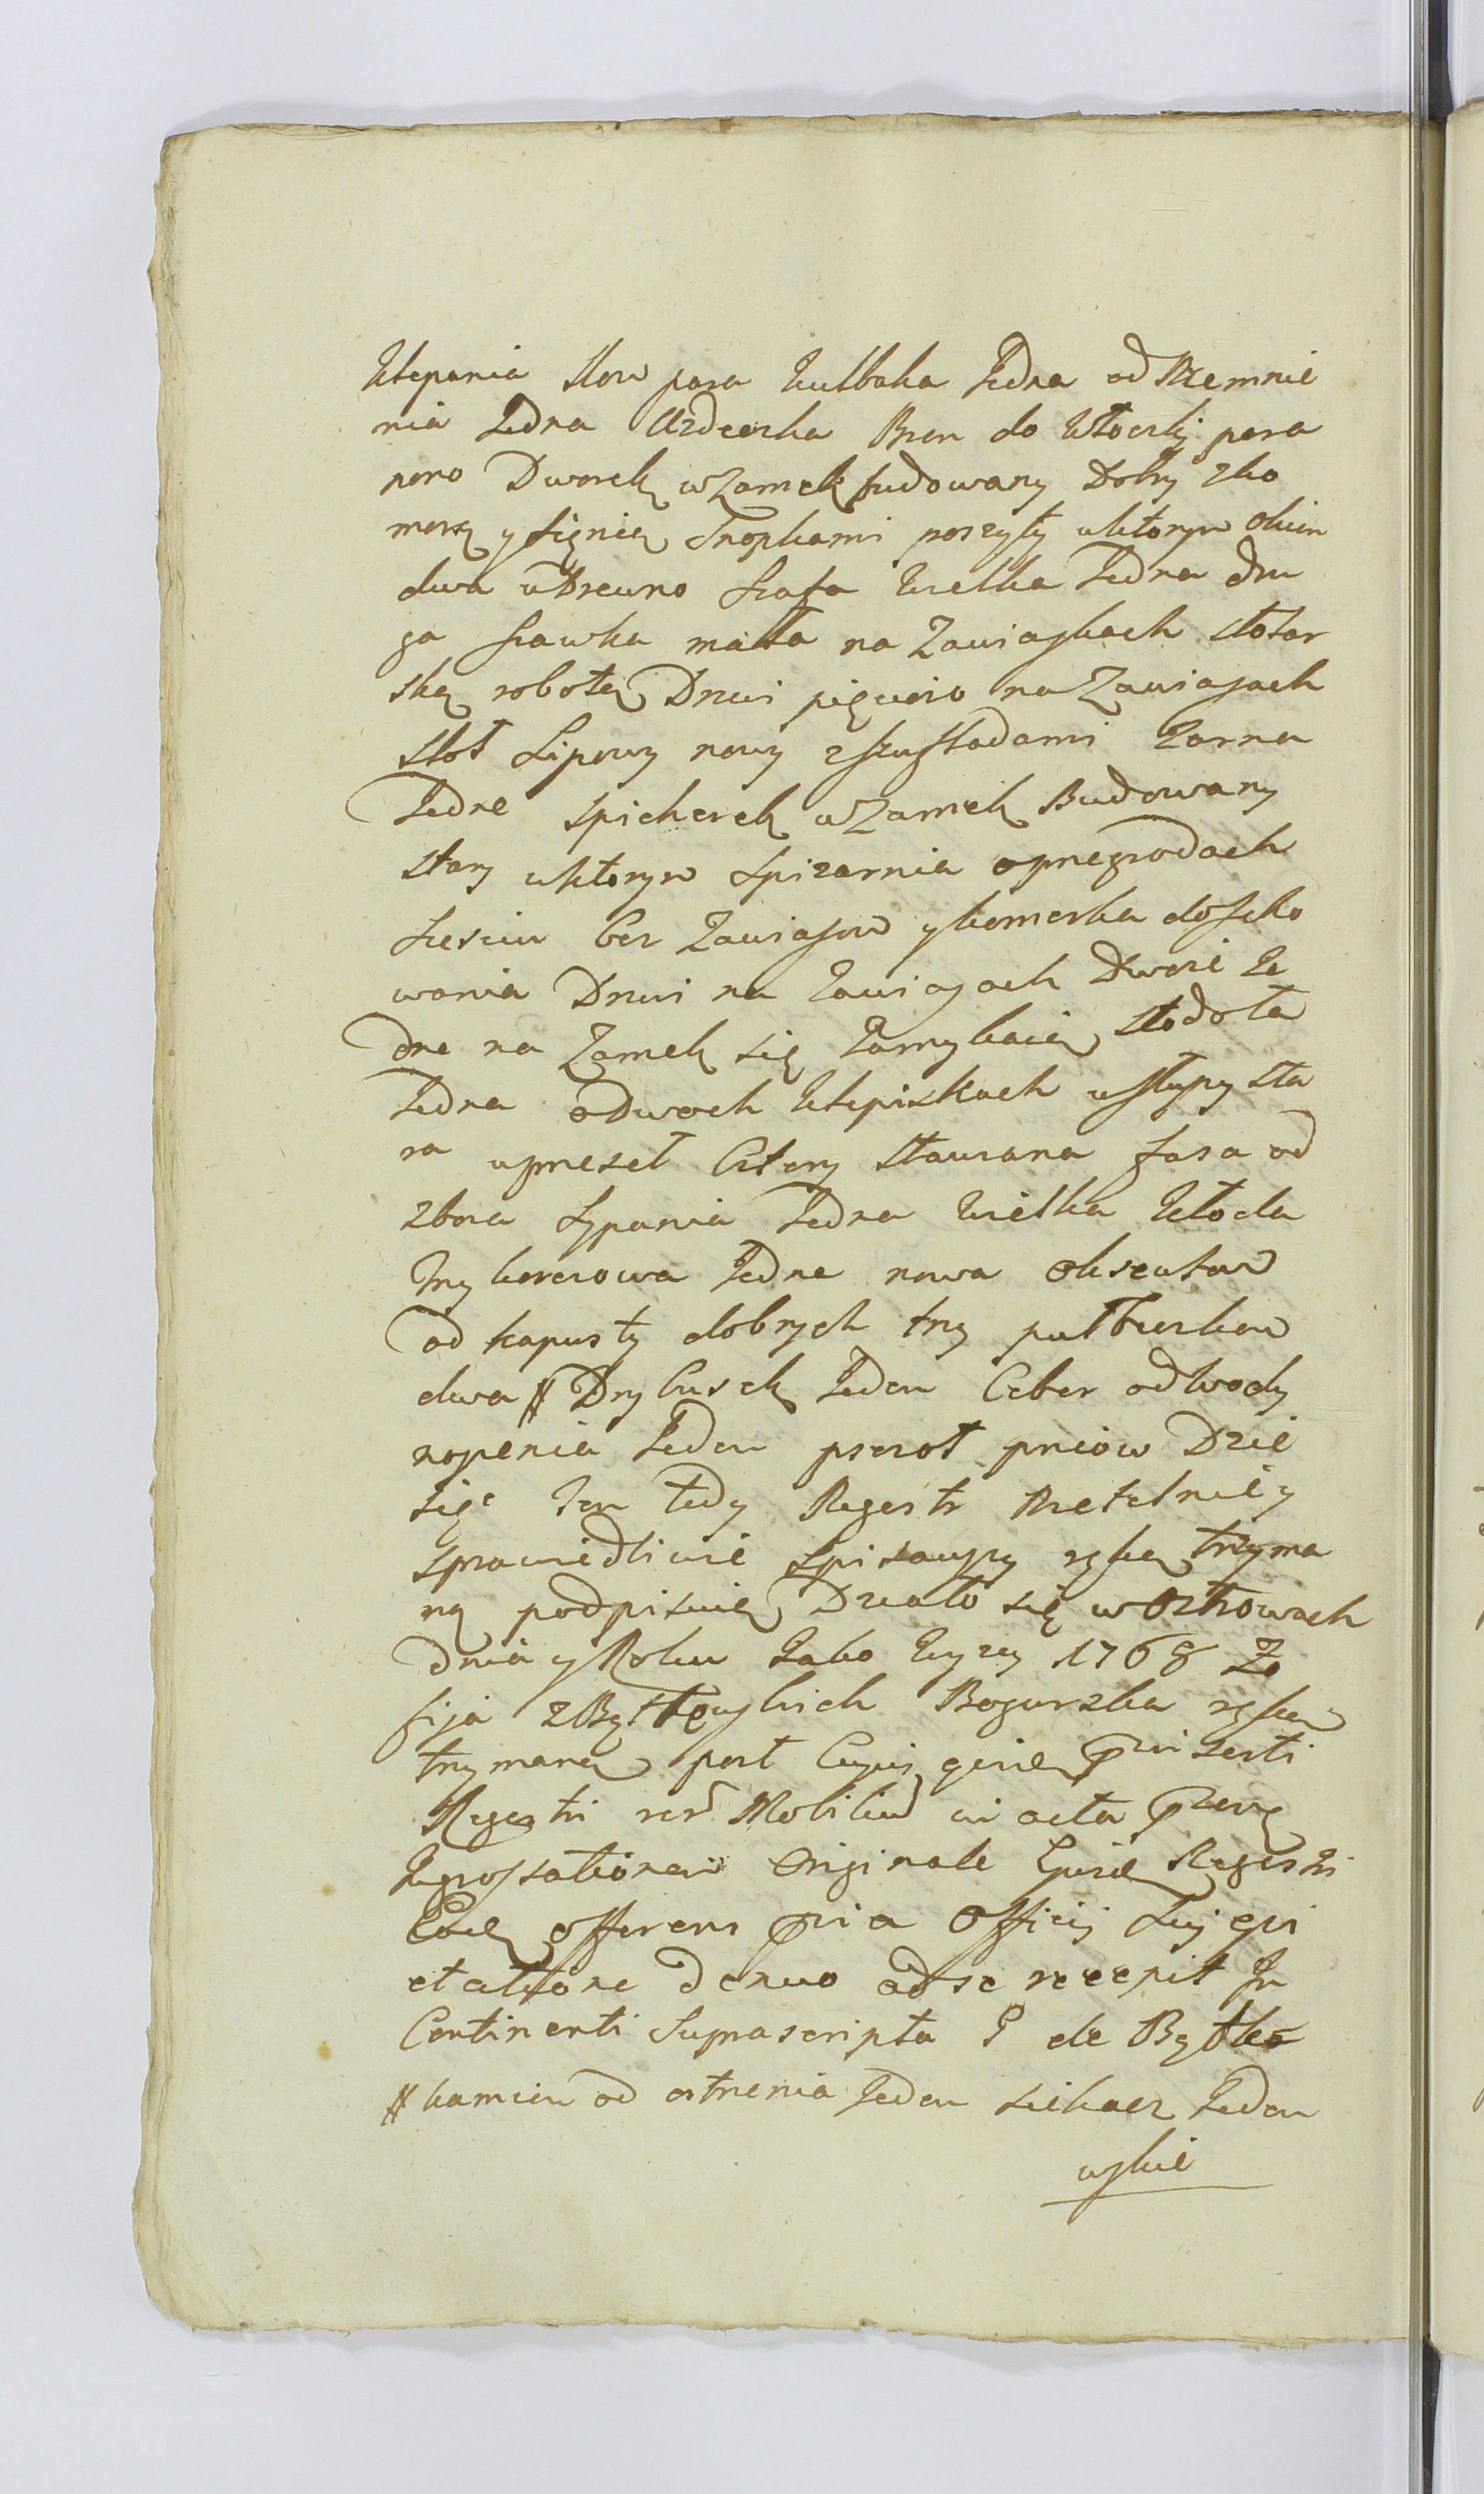 klepania kow para kulbaka Jedna od strzemnie
nia Jedna Uzdeczka Bron do włoczki para
nowo Dworek w Zamek budowany Dobry zko
morą y sięnią Snopkami poszyty wktorym okien
dwa w Drewno szafa wielka Jedna dru
ga szawka mała na Zawiaskach stolar
ską robotą Drzwi pięcioro na Zawiasach
stoł Lipowy nowy zszufladami Zarna
Jedne spicherek w Zamek Budowany
stary wktorym spizarnia oprzegrodach
sześciu bez Zawiasow y komorka do scho
wania Drzwi na zawiasach Dwoie Je
dne na Zamek się Zamykaią, stodoła
Jedna o Dwoch klepiskach w słupy sta
ra w przeseł cztery stawiana fasa od
zboza sypania Jedna wielka kłoda
Trzy korcowa Jedna nowa okseutow
od kapusty dobrych trzy puł beczkow
dwa # Dryfusek Jeden Ceber od wody
nopenia Jeden pszczoł pniow Dzie
sięc Ten tedy Regestr Rzetelnie y
sprawiedliwie spisawszy ręką trzyma
ną podpisuię Działo się w Ostrowach
dnia y Roku Jako wyzey 1768 Zo
fija z Bystkowskich Bogurzka ręką
trzymaną post Cujus quidem pntis
Regestri rer Mobilium in acta pntia
Ingrossationem Originale ejusdem Regestri
Eadem offerens pria Officij sui qui
etatione denuo ad se recepit In
Continenti Suprascripta G de Bystko
# kamien od ostrzenia Jeden siekacz Jeden
wskie